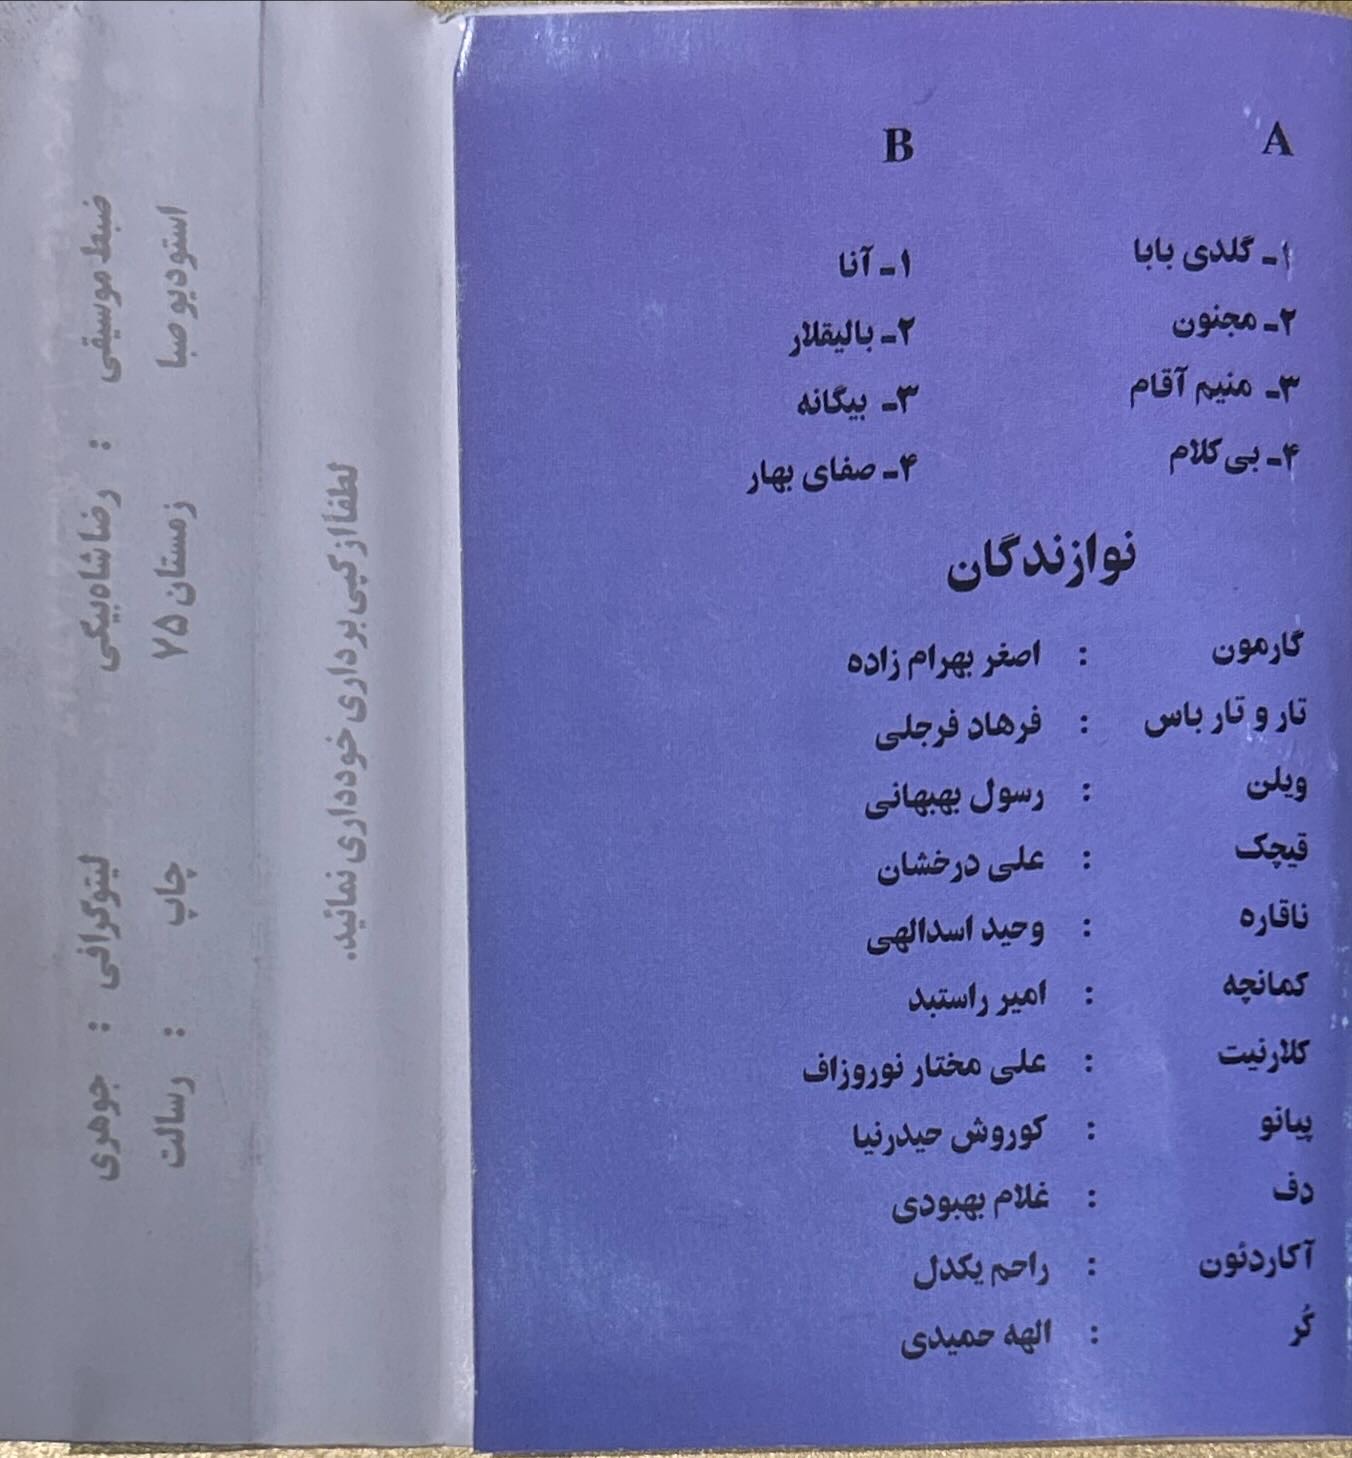 A
۱ـ گلدی بابا
۲ـ مجنون
۳ـ منیم آقام
۴ـ بی کلام
B
۱ـ آنا
۲ـ بالیقلار
۳ـ بیگانه
۴ـ صفای بهار
نوازندگان
گارمون : اصغر بهرام زاده
تار و تار باس : فرهاد فرجلی
ویلن : رسول بهبهانی
قیچک : علی درخشان
ناقاره : وحید اسدالهی
کمانچه : امیر راستبد
کلارنیت : علی مختار نوروزاف
پیانو : کوروش حیدرنیا
دف : غلام بهبودی
آکاردئون : راحم یکدل
کُر : الهه حمیدی
لطفاً از کپی برداری خودداری نمائید.
استودیو صبا زمستان ۷۵ چاپ : رسالت
ضبط موسیقی : رضا شاه‌بیگی لیتوگرافی : جوهری